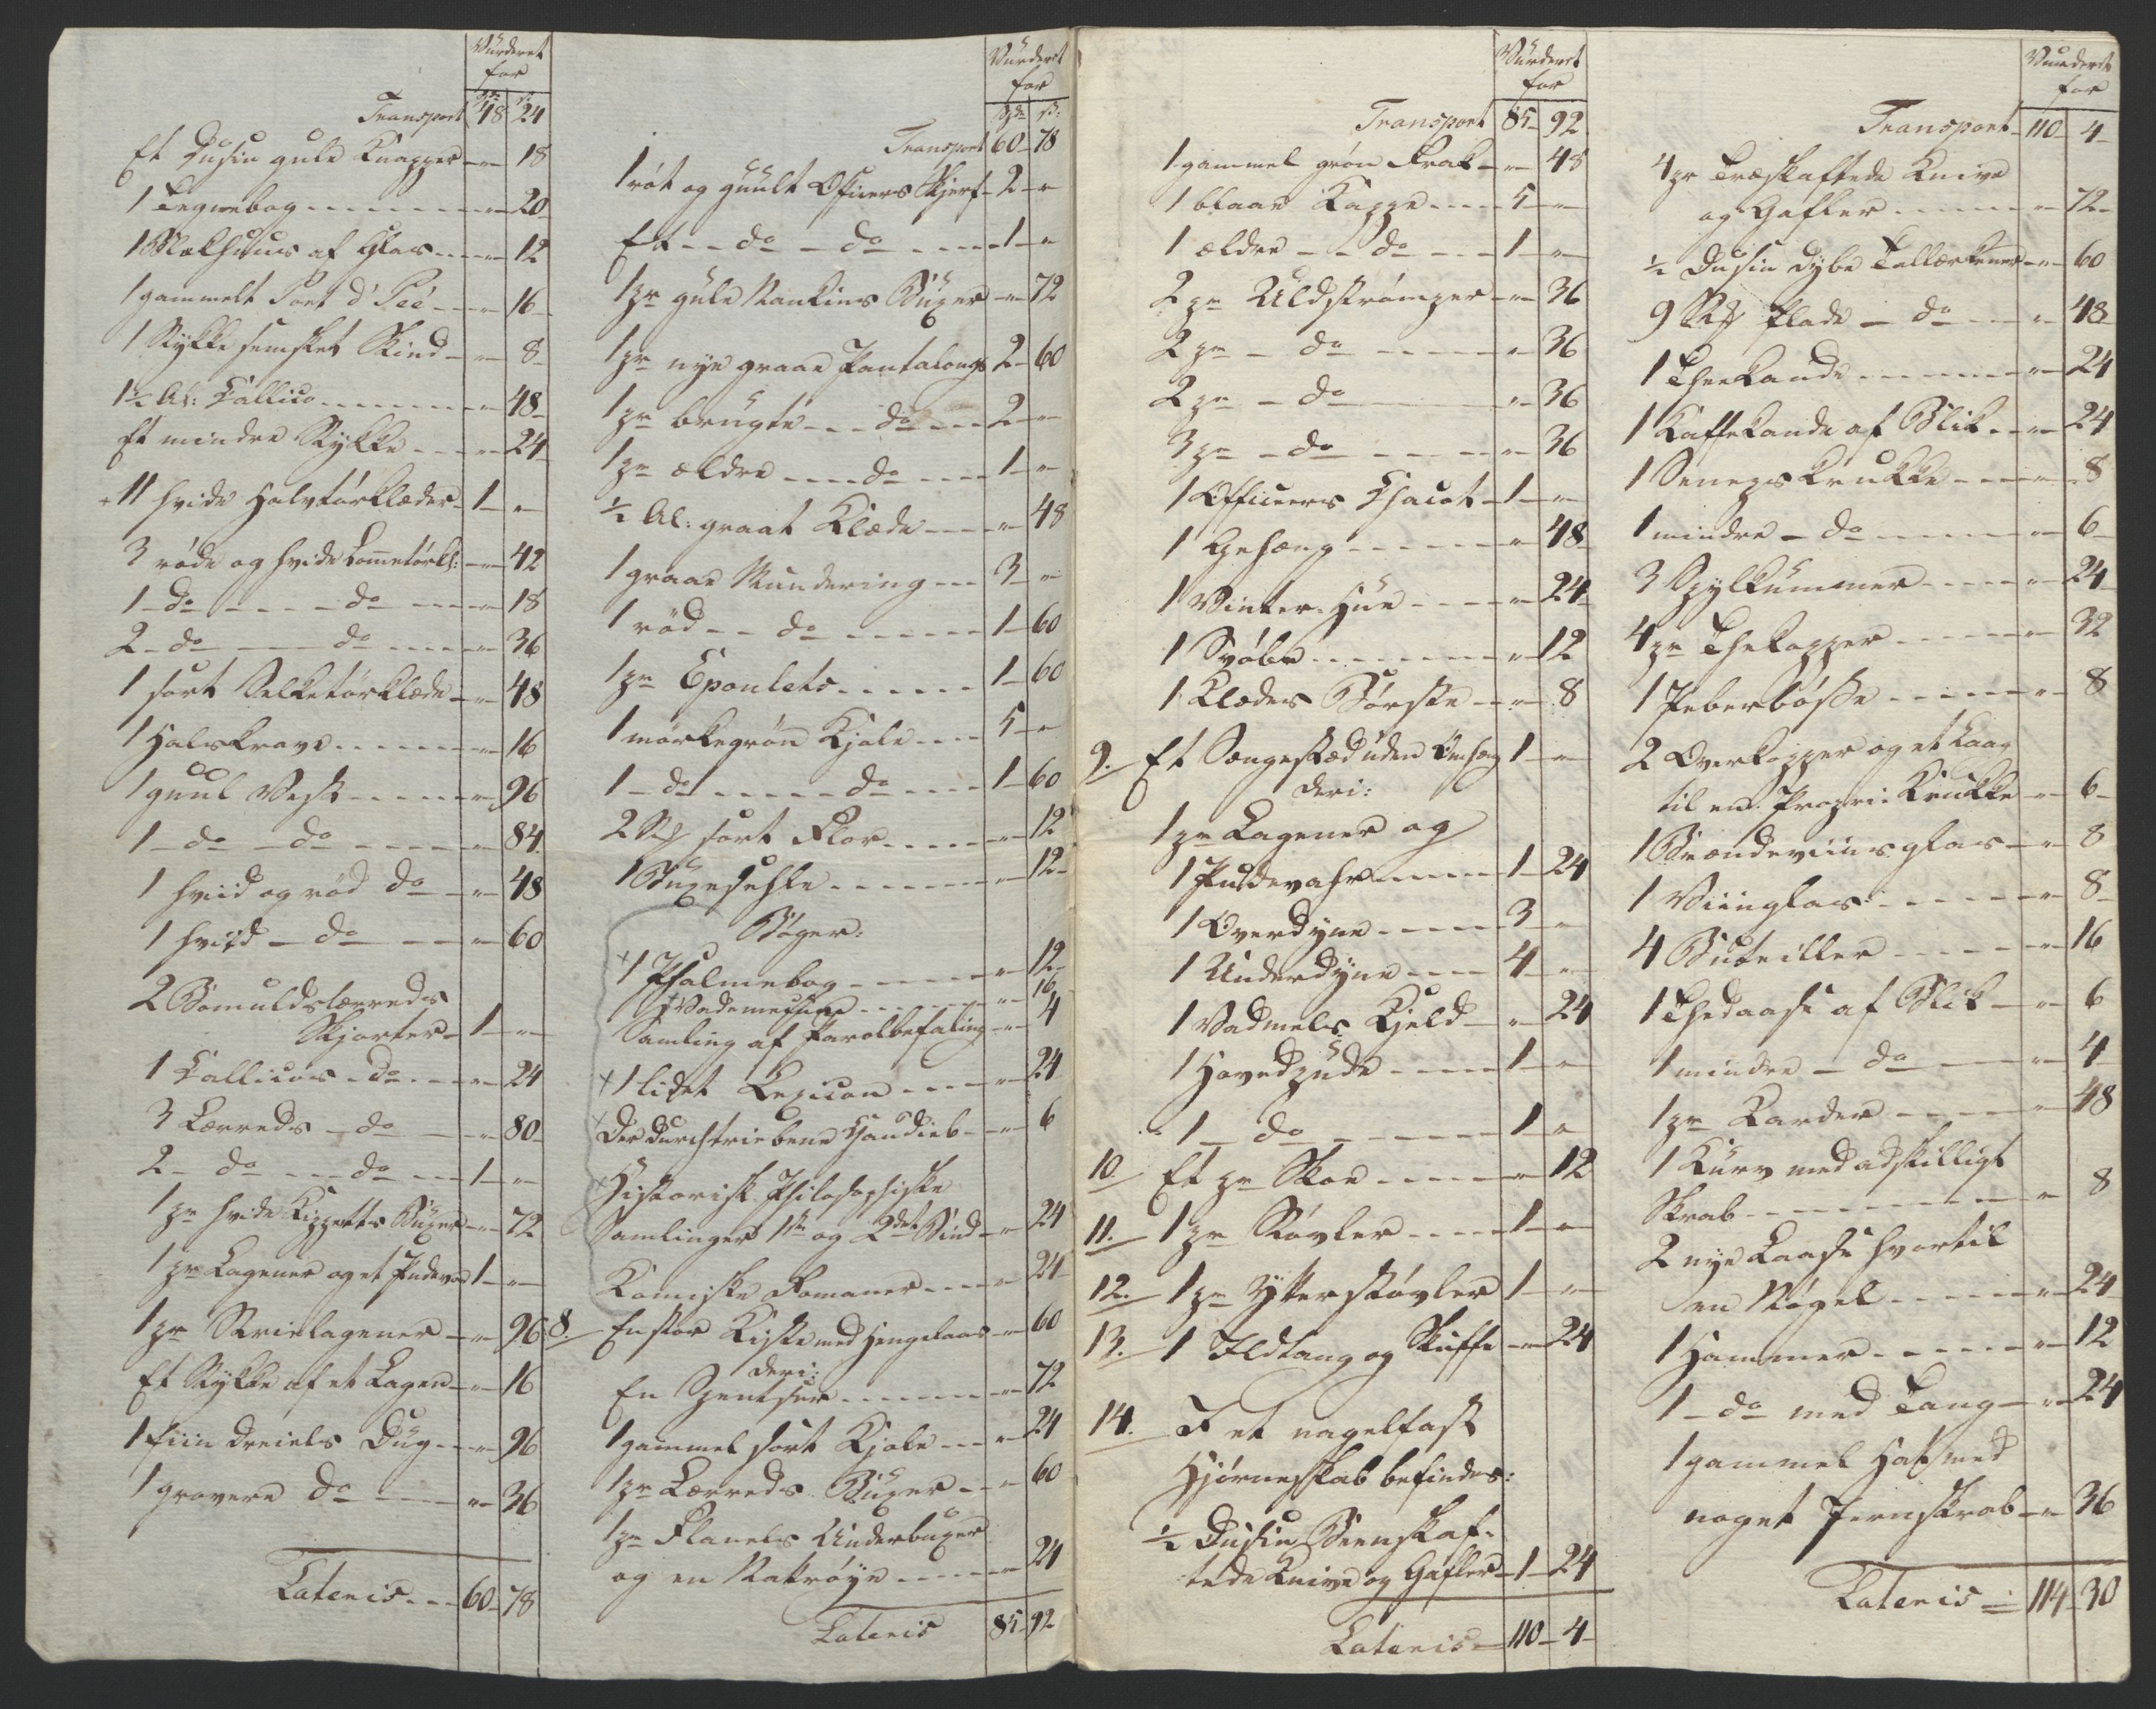 Vurderet
for
Transport 48 24
Et Dusin gule Knapper - " - 18
1 Tegnebog - " - 20
1 Melkhuus af Glas - " - 12
1 gammelt Port d' Peé - " - 16
1 Stykke semsket Skind - " - 8
1½ Al: Callico - " - 48
Et mindre Stykke - " - 24
11 hvide Halstørklæder - 1 - "
3 røde og hvide Lometørkl: - " - 42
1 - do - do - " - 18
2 - do - do - " - 36
1 sort Silketørklæde - " - 48
1 Halskrave - " - 16
1 guul Vest - " - 96
1 - do - do - " - 84
1 hvid og rød do - " - 48
1 hvid - do - " - 60
2 Bomuldslærreds
Skjorter - 1 - "
1 Callicos - do - " - 24
3 Lærreds - do - " - 80
2 - do - do - 1 - "
1 pr hvide Kippetts Buxer - " - 72
1 pr Lagener og et Pudevar 1 - "
1 pr Strielagener - " - 96
Et Stykke af et Lagen - " - 16
1 fiin Dreiels Dug - " - 96
1 grovere do - " - 36
Lateris - 60 - 78
Vurderet
for
Spd s:
Transport 60 - 78
1 rødt og guult Officers Skjerf - 2 - "
Et - do - do - 1 - "
1 pr gule Nankins Buxer - " - 72
1 pr nye graae Pantalongs 2 - 60
1 pr brugte - do - 2 - "
1 pr ældre - do - 1 - "
½ Al: graat Klæde - " - 48
1 graae Mundering - 3 - "
1 rød - do - 1 - 60
1 pr Epoulets - 1 - 60
1 mørkegrøn Kjole - 5 - "
1 - do - do - 1 - 60
2 St sort Flor - " - 12
1 Buxesehle - " - 12
Bøger:
1 Psalmebog - " - 12
1 Vademecum - " - 16
Samling af Parolbefaling - " - 4
1 lidet Lexicon - " - 24
Der durchtriebene Haudieb - " - 6
Historisk Philosophiske
Samlinger 1ste og 2det Bind - " - 24
Komiske Romaner - " - 24
8. En stor Kiste med Hengelaas - " - 60
deri:
En Spentser - " - 72
1 gammel sort Kjole - " - 24
1 pr Lærreds Buxer - " - 60
1 pr Flanels Underbuxer
og en Nattrøye - " - 24
Lateris 85 - 92
Vurderet
for
Transport 85 - 92
1 gammel grøn Frak - " - 48
1 blaae Kappe - 5 - "
1 ældre - do - 1 - "
2 pr Uldstrømper - " - 36
2 pr - do - " - 36
2 pr - do - " - 36
3 pr - do - " - 36
1 Officeers Chacot - 1 - "
1 Gehæng - " - 48
1 Vinter-Hue - " - 24
1 Svøbe - " - 12
1 Klædes Børste - " - 8
9. Et Sengested uden Omhæng 1 - "
deri:
1 pr Lagener og
1 Pudevahr - 1 - 24
1 Overdyne - 3 - "
1 Underdyne - 4 - "
1 Vadmels Kjeld - " - 24
1 Hovedpude - 1 - "
1 - do - 1 - "
10. Et pr Skoe - " - 12
11. 1 pr Støvler - 1 - "
12. 1 pr Ytterstøvler 1 - "
13. 1 Ildtang og Skuffe - " - 24
14. I et nagelfast
Hjørneskab befindes:
½ Dusin Beenskaf-
tede Knive og Gafler - 1 - 24
Lateris - 110 - 4
Vurderet
for
Transport - 110 - 4
4 pr Træskaftede Knive
og Gafler - " - 72
½ Dusin dybe Tallerkener - " - 60
9 St flade - do - " - 48
1 Theekande - " - 24
1 Kaffekande af Blik - " - 24
1 Senepskrukke - " - 8
1 mindre - do - " - 6
3 Spylkummer - " - 24
4 pr Thekopper - " - 32
1 Peberbøsse - " - 8
2 Overkopper og et Laag
til en Krukke - " - 6
1 Brændeviinsglas - " - 8
1 Viinglas - " - 8
4 Buteiller - " - 16
1 Thedaase af Blik - " - 6
1 mindre - do - " - 4
1 pr Karder - " - 48
1 Kurv med adskilligt
Skrab - " - 8
2 nye Laase hvortil
en Nøgel - " - 24
1 Hammer - " - 12
1 - do med Tang - " - 24
1 gammel Hat med
noget Jernskrab - " - 36
Lateris - 114 - 30